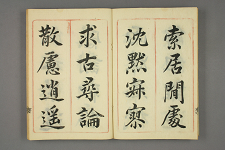 索居閒處
沈默寂寥
求古尋論
散慮逍遥